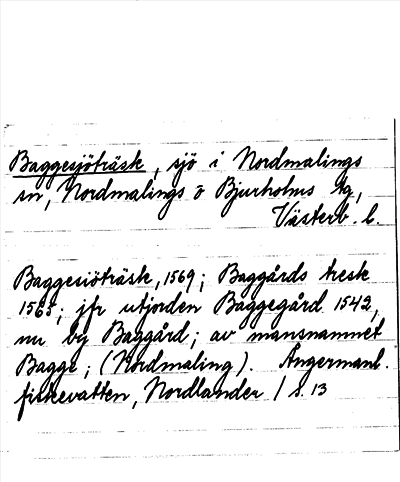 Baggesjöträsk, sjö i Nordmalings
sn, Nordmalings o Bjurholms tg,
Västerb. l.
Baggesiöträsk, 1569; Baggårds tresk
1565; jfr utjorden Baggegård 1542,
nu by Baggård; av mansnamnet
Bagge; (Nordmaling). Ångermanl.
fiskevatten, Nordlander / s. 13